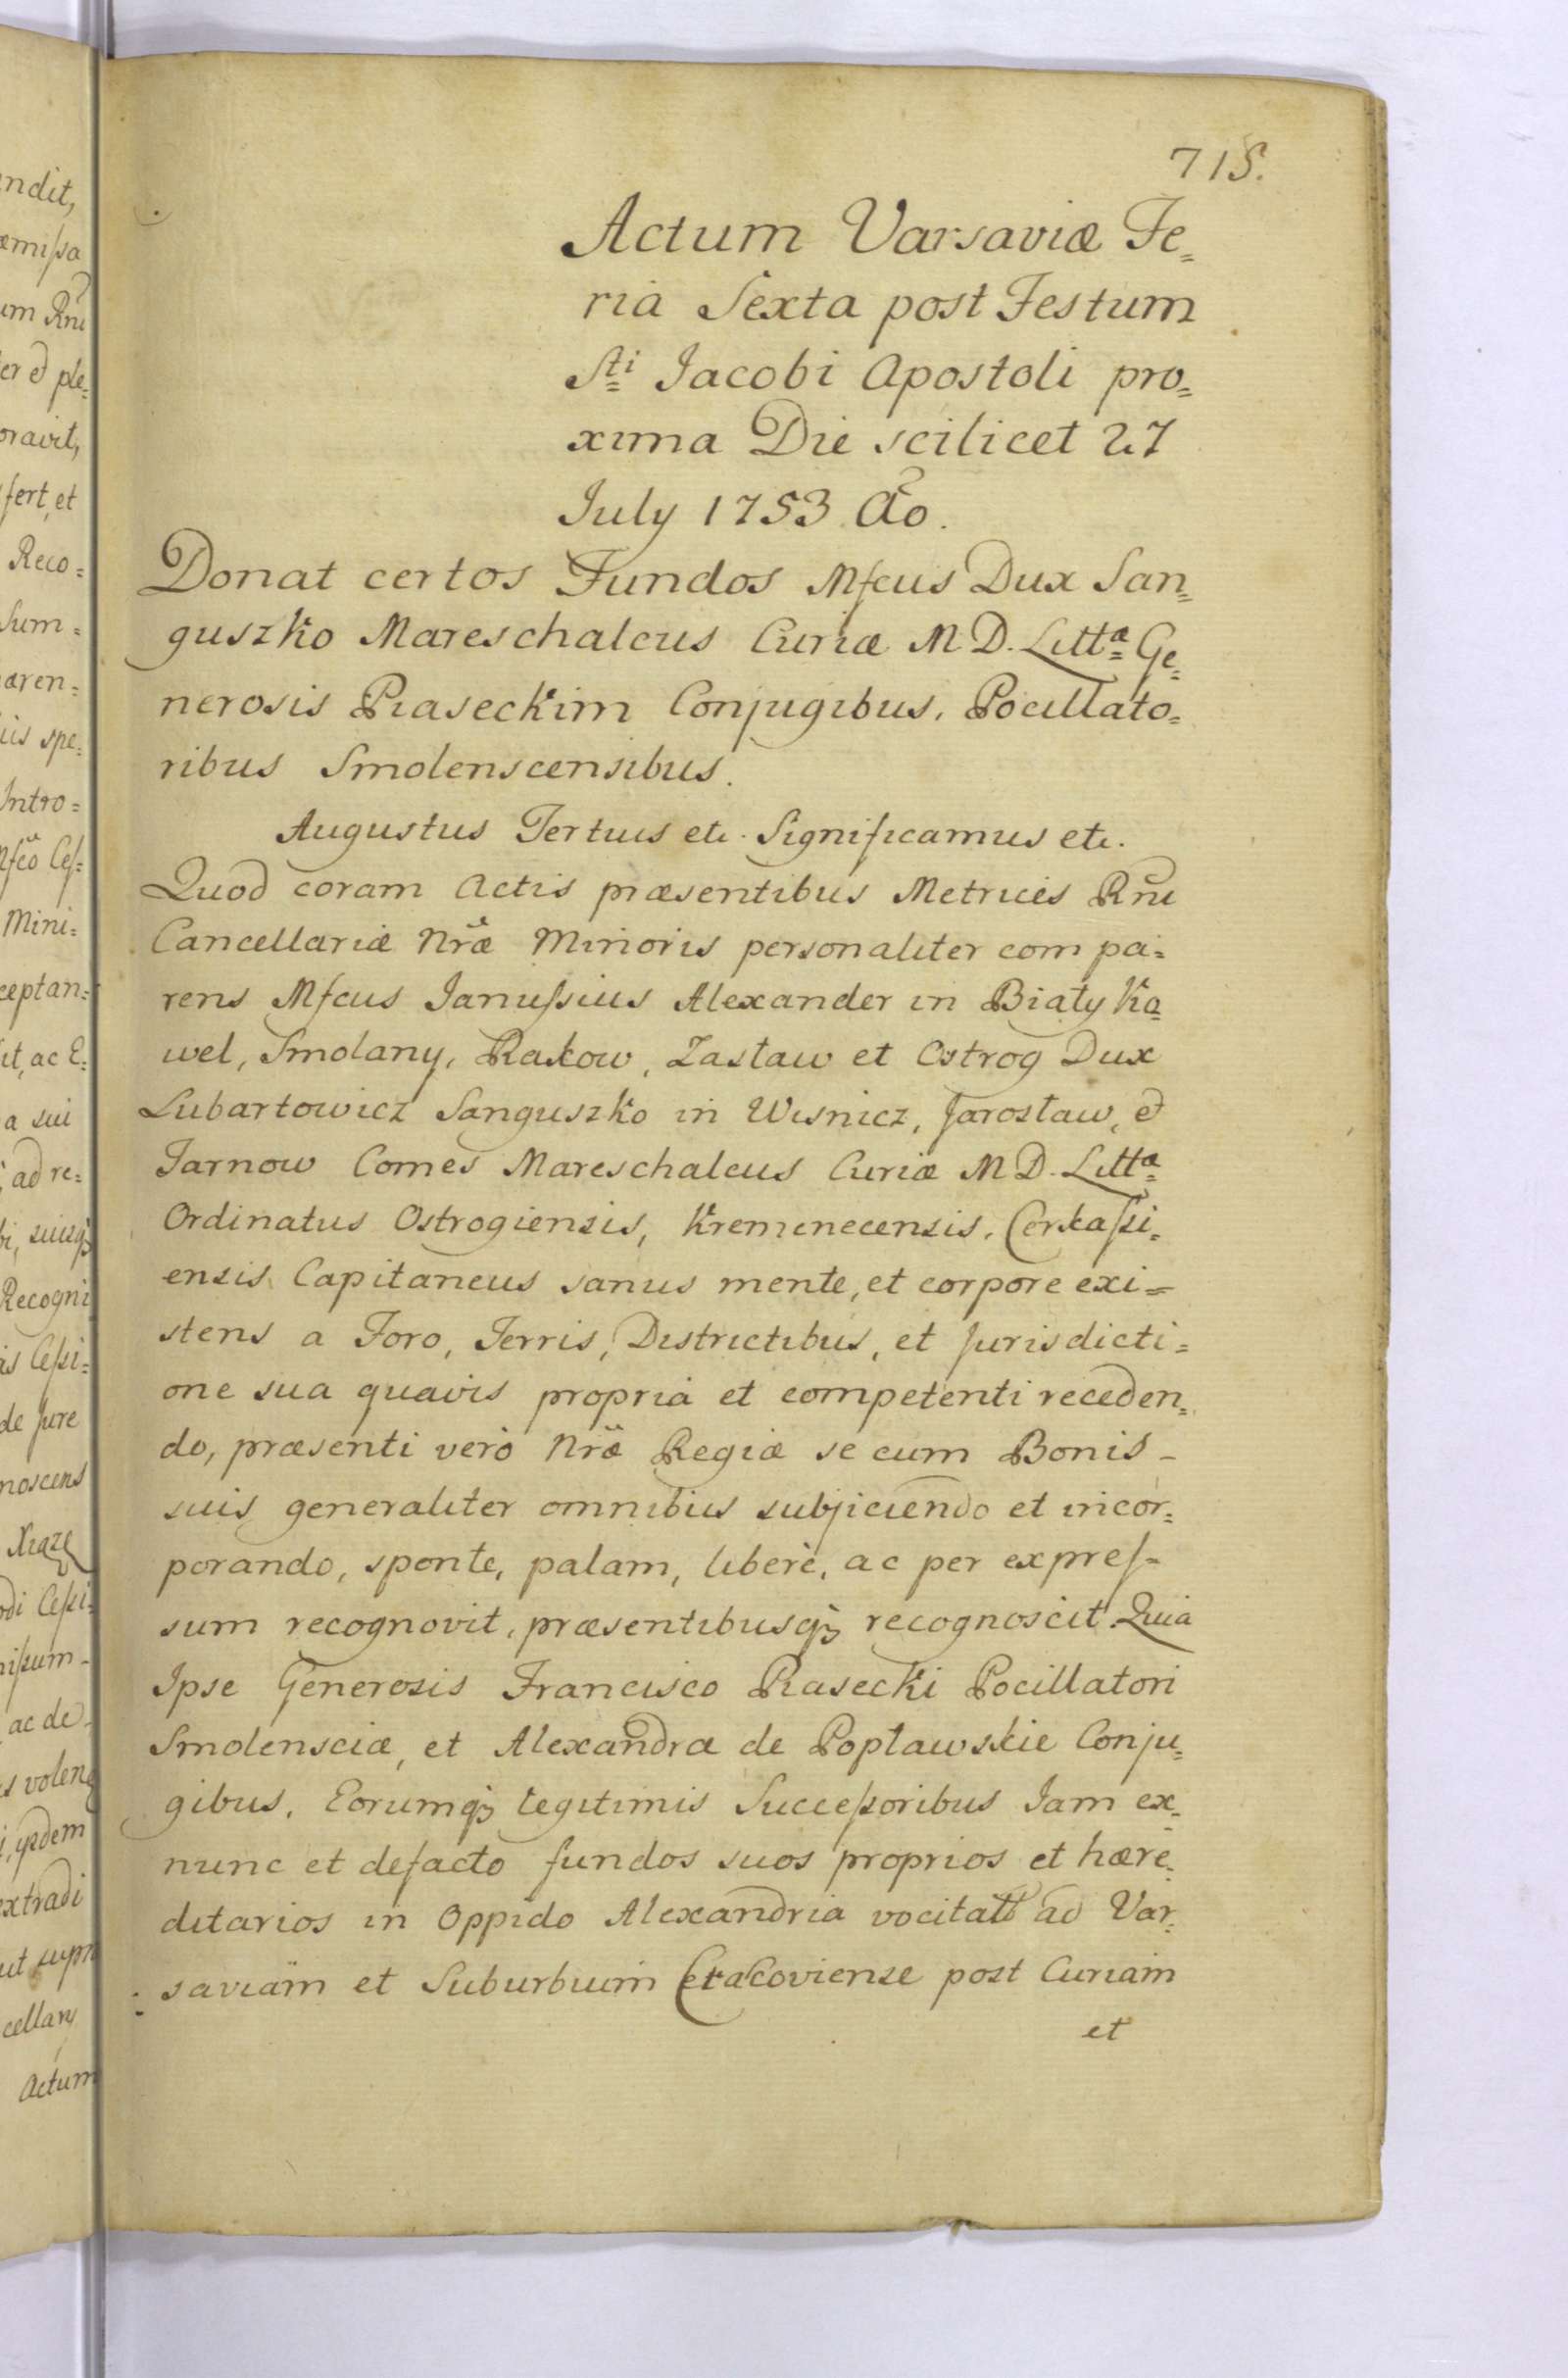 ndit,
æmißa
um Rñi
er et ple=
oravit,
fert, et
Reco=
Sum=
aren=
iis spe=
Intro=
Mfcô Ceß=
Mini=
ceptan=
it, ac E=
a sui
ad re=
bi, suisq3
Recogni
is Ceßi=
de Jure
noscens
Xiąże
odi Ceßi=
ißum
ac de
s volens
i, ipsdem
extradi
ut supra
cellary
Actum
715.
Actum Varsaviæ Fe=
ria Sexta post Festum
Sti Jacobi Apostoli pro=
xima Die scilicet 27
July 1753 Ao.
Donat certos Fundos Mfcus Dux San=
guszko Mareschalcus Curiæ M D. Littæ Ge=
nerosis Piaseckim Conjugibus, Pocillato=
ribus Smolenscensibus.
Augustus Tertius etc. Significamus etc.
Quod coram Actis præsentibus Metrices Rñi
Cancellariæ Nræ Minoris personaliter compa=
rens Mfcus Janußius Alexander in Biały Ko=
wel, Smolany, Rakow, Zasław et Ostrog Dux
Lubartowicz Sanguszko in Wisnicz, Jarosław, et
Tarnow Comes Mareschalcus Curiæ M D. Littæ
Ordinatus Ostrogiensis, Kremenecensis, Cerkaßi=
ensis Capitaneus sanus mente, et corpore exi=
stens a Foro, Terris, Districtibus, et Jurisdicti=
one sua quavis propria et competenti receden=
do, præsenti verò Nræ Regiæ se cum Bonis -
suis generaliter omnibus subjiciendo et incor=
porando, sponte, palam, liberè, ac per expres=
sum recognovit, præsentibusq3 recognoscit. Quia
Ipse Generosis Francisco Piasecki Pocillatori
Smolensciæ, et Alexandra de Popławskie Conju=
gibus, Eorumq3 legitimis Succeßoribus Jam ex=
nunc et defacto fundos suos proprios et hære=
ditarios in Oppido Alexandria vocitatt ad Var=
saviam et Suburbium Cracoviense post Curiam
et